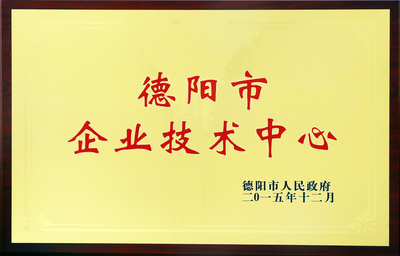 德阳市
企业技术中心
德阳市人民政府
二0一五年十二月